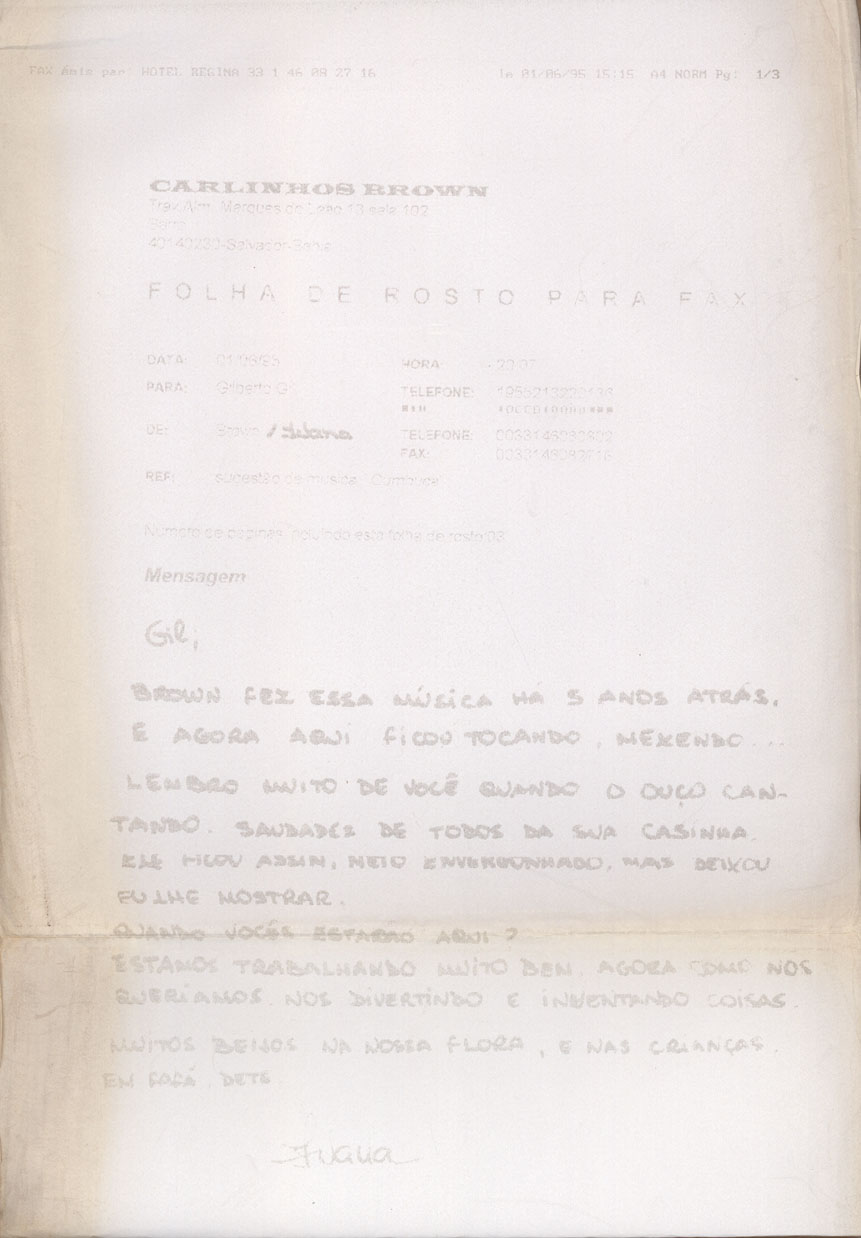 FAX émis par: HOTEL REGINA 33 1 46 08 27 16 le 01/06/95 15:15 A4 NORM Pg: 1/3
CARLINHOS BROWN
Trav. Alm. Marques de Leão 13 sala 102
Barra
40140230-Salvador-Bahia
FOLHA DE ROSTO PARA FAX
DATA: 01/06/95 HORA:
PARA: Gilberto Gil TELEFONE:
DE: Brown / Ivana TELEFONE:
FAX:
REF: sugestão de música
Número de páginas incluindo esta folha de rosto: 03
Mensagem
Gil,
BROWN FEZ ESSA MÚSICA HÁ 5 ANOS ATRÁS,
E AGORA AQUI FICOU TOCANDO, MEXENDO...
LEMBRO MUITO DE VOCÊ QUANDO O OUÇO CAN-
TANDO. SAUDADES DE TODOS DA SUA CASINHA.
ELE FICOU ASSIM, MEIO ENVERGONHADO, MAS DEIXOU
EU LHE MOSTRAR.
QUANDO VOCÊS ESTARÃO AQUI?
ESTAMOS TRABALHANDO MUITO BEM. AGORA COMO NÓS
QUERÍAMOS. NOS DIVERTINDO E INVENTANDO COISAS.
MUITOS BEIJOS NA NOSSA FLORA, E NAS CRIANÇAS.
EM FAFÁ, DETE
Ivana